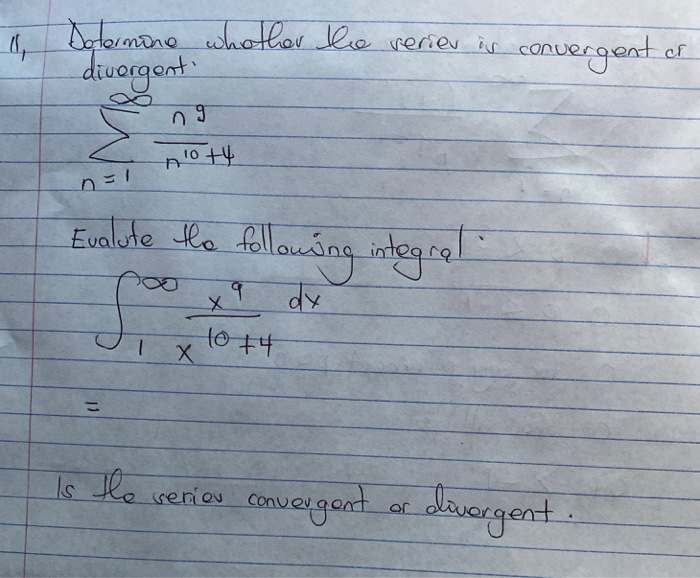 11, Determine whether the series is convergent or
divergent.
∞
∑ n^9 / n^10 + 4
n = 1
Evalute the following integral.
∫_1^∞ x^9 / x^10 + 4 dx
=
Is the series convergent or divergent.